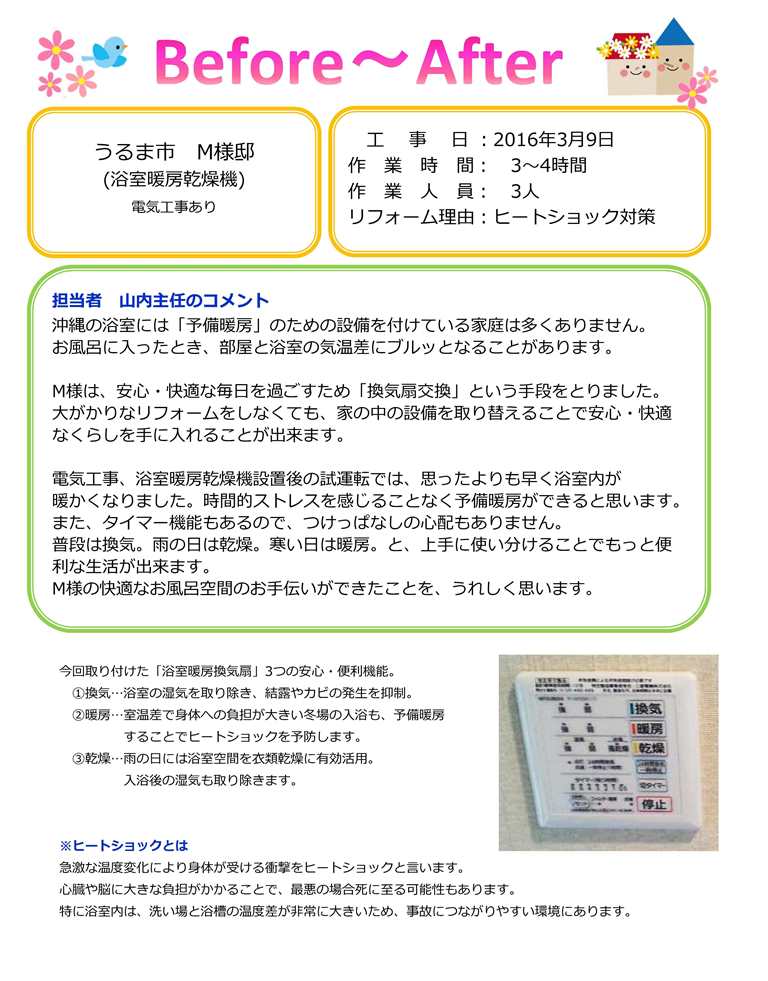 Before～After
うるま市　M様邸
(浴室暖房乾燥機)
電気工事あり
工　事　日：2016年3月9日
作　業　時　間：　3～4時間
作　業　人　員：　3人
リフォーム理由：ヒートショック対策
担当者　山内主任のコメント
沖縄の浴室には「予備暖房」のための設備を付けている家庭は多くありません。
お風呂に入ったとき、部屋と浴室の気温差にブルッとなることがあります。
M様は、安心・快適な毎日を過ごすため「換気扇交換」という手段をとりました。
大がかりなリフォームをしなくても、家の中の設備を取り替えることで安心・快適
なくらしを手に入れることが出来ます。
電気工事、浴室暖房乾燥機設置後の試運転では、思ったよりも早く浴室内が
暖かくなりました。時間的ストレスを感じることなく予備暖房ができると思います。
また、タイマー機能もあるので、つけっぱなしの心配もありません。
普段は換気。雨の日は乾燥。寒い日は暖房。と、上手に使い分けることでもっと便
利な生活が出来ます。
M様の快適なお風呂空間のお手伝いができたことを、うれしく思います。
今回取り付けた「浴室暖房換気扇」3つの安心・便利機能。
①換気…浴室の湿気を取り除き、結露やカビの発生を抑制。
②暖房…室温差で身体への負担が大きい冬場の入浴も、予備暖房
することでヒートショックを予防します。
③乾燥…雨の日には浴室空間を衣類乾燥に有効活用。
入浴後の湿気も取り除きます。
換気
強 弱
暖房
強 弱
乾燥
切タイマー
停止
※ヒートショックとは
急激な温度変化により身体が受ける衝撃をヒートショックと言います。
心臓や脳に大きな負担がかかることで、最悪の場合死に至る可能性もあります。
特に浴室内は、洗い場と浴槽の温度差が非常に大きいため、事故につながりやすい環境にあります。